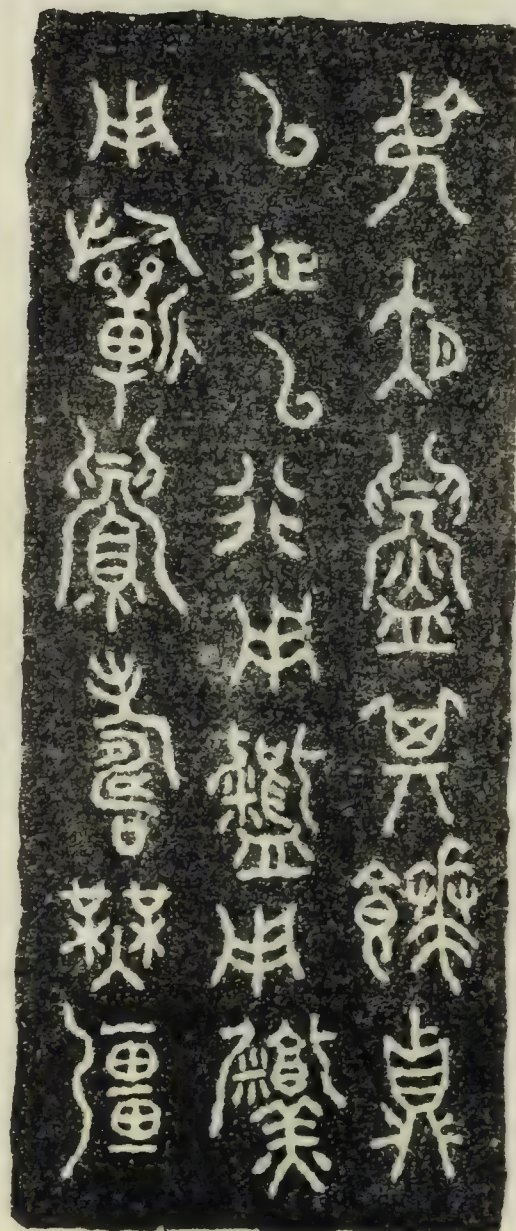 叔夜鑄其饙鼎
以征以行用𩰫用羹
用祈眉壽無疆